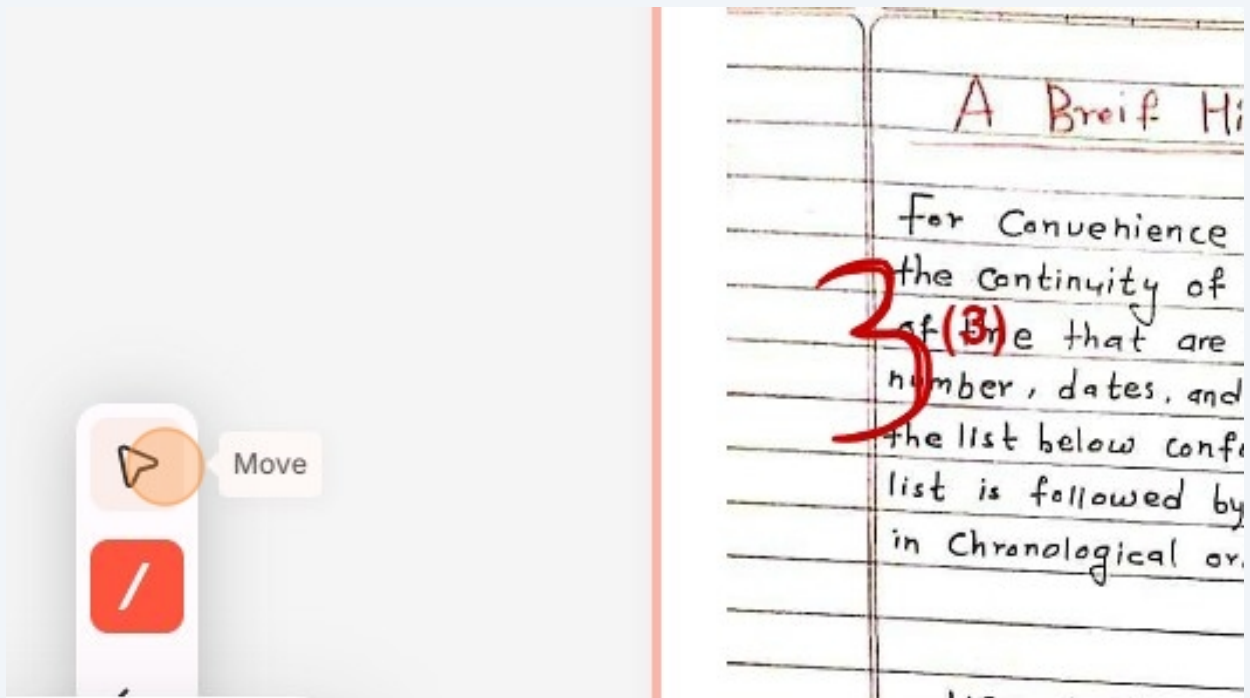 A Breif Hi
For Convenience
the continuity of
3
of (3) e that are
number, dates, and
the list below conf
list is followed by
in Chronological or.
Move